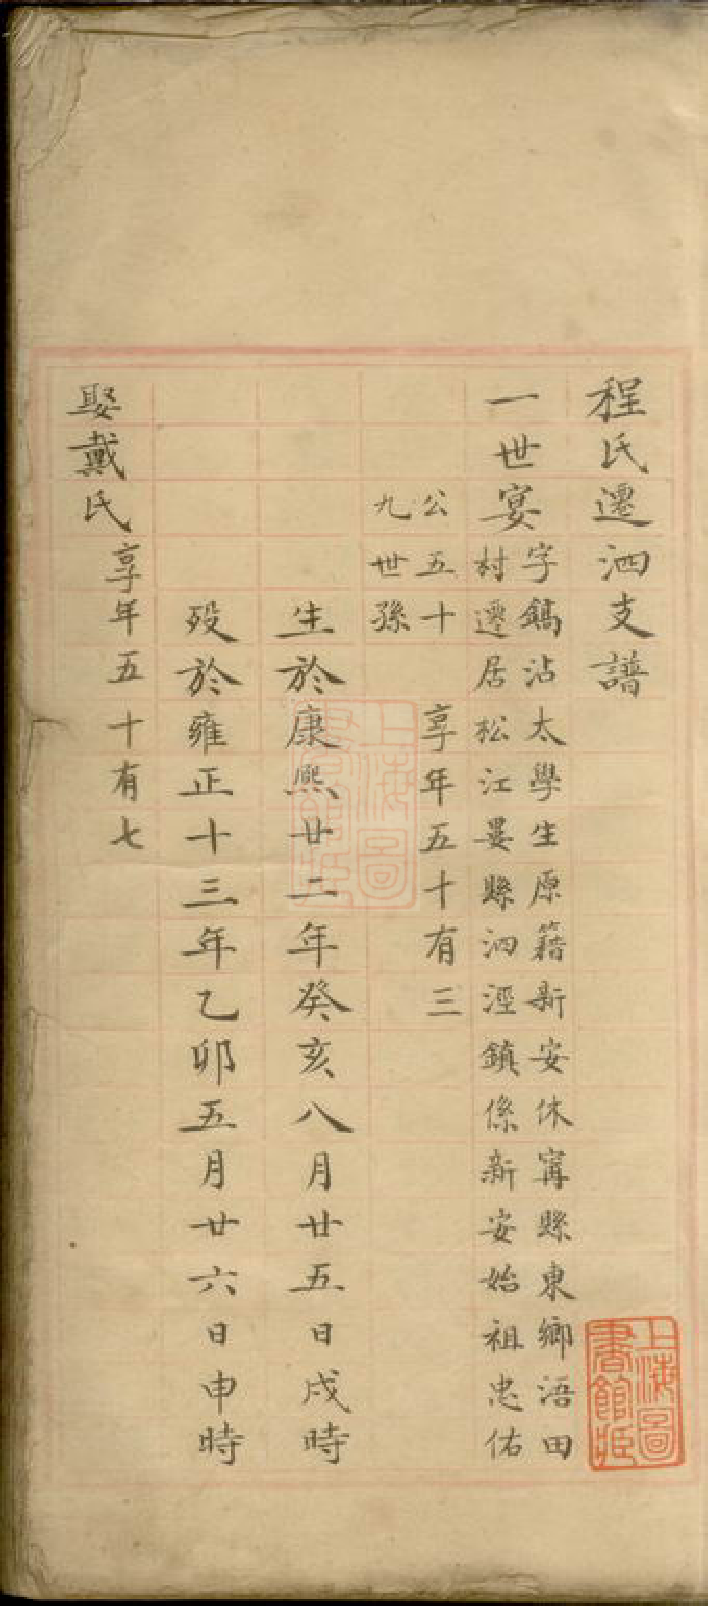 程氏遷泗支譜
一世宴
字鎬沾太學生原籍新安休甯縣東鄉浯田
村遷居松江婁縣泗涇鎮係新安始祖忠佑
公五十
九世孫
享年五十有三
生於康熙廿二年癸亥八月廿五日戌時
歿於雍正十三年乙卯五月廿六日申時
娶戴氏
享年五十有七
上海圖
書館藏